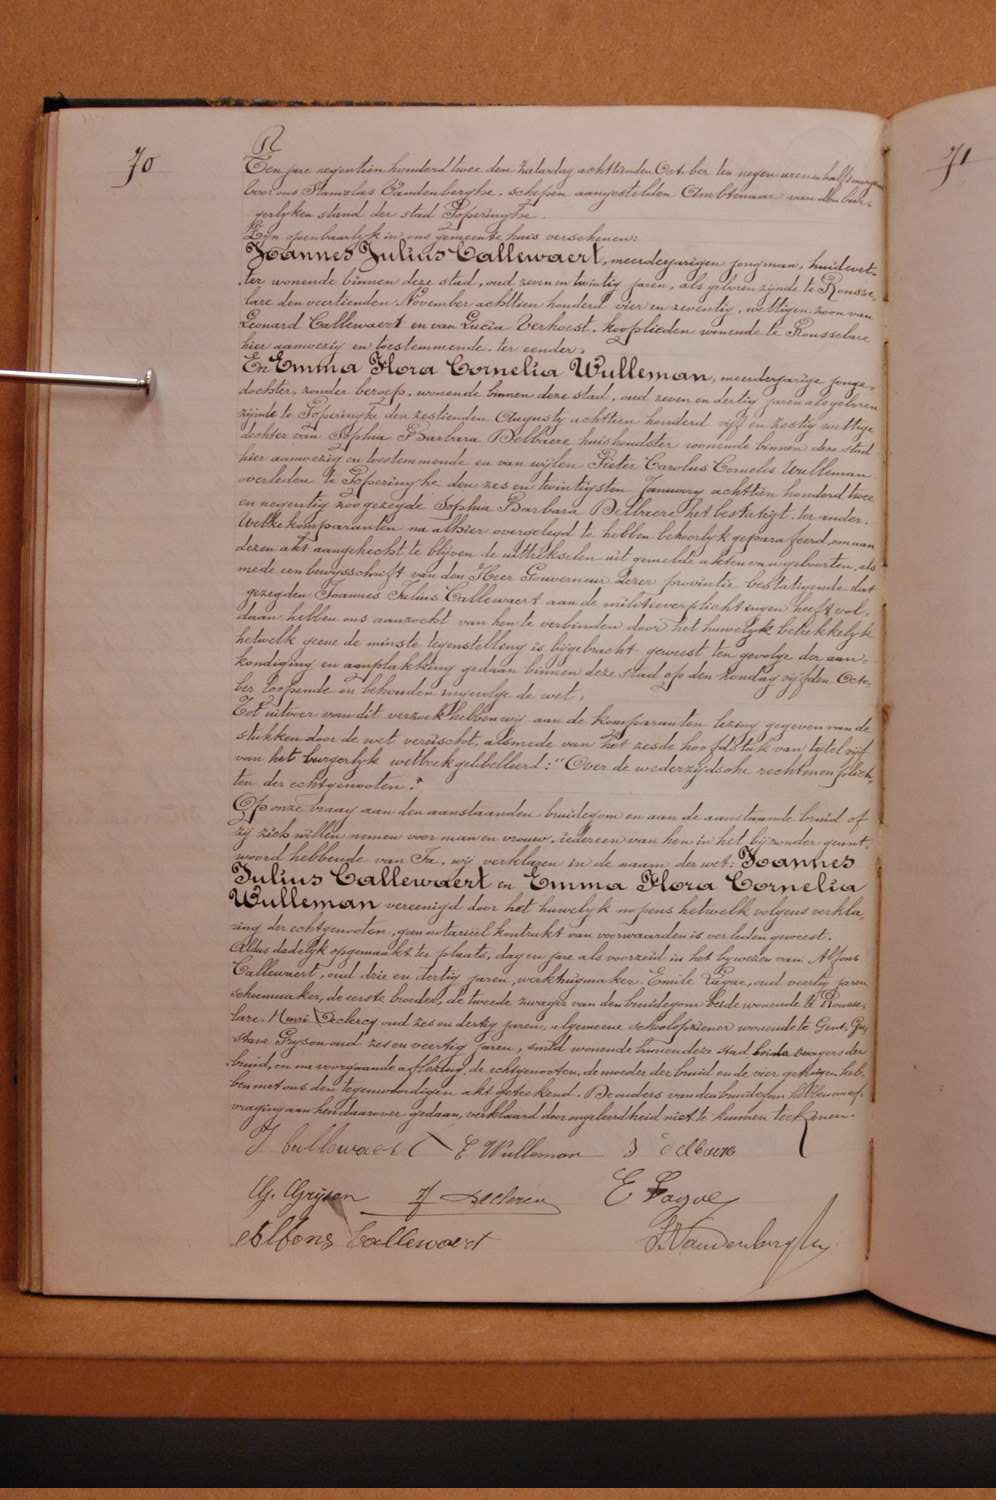 70
71
Ten jare negentien honderd twee den Zaturdag achttienden October ten negen uren en half 's morgens
voor ons Stanislas Vandenberghe, schepen aangestelden Ambtenaar van den bur-
gerlyken stand der stad Poperinghe.
Zyn openbaarlyk in ons gemeente huis verschenen:
Joannes Julius Callewaert, meerderjarigen jongman, huidevet-
ter wonende binnen deze stad, oud zeven en twintig jaren, als geboren zijnde te Rousse-
lare den veertienden November achttien honderd vier en zeventig, wettigen zoon van
Leonard Callewaert en van Lucia Verhoest, kooplieden wonende te Rousselare
hier aanwezig en toestemmende. ter eender.
En Emma Flora Cornelia Wulleman, meerderjarige jonge-
dochter, zonder beroep, wonende binnen deze stad, oud zeven en dertig jaren als geboren
zijnde te Poperinghe den zestienden Augusty achttien honderd vijf en zestig wettige
dochter van Sophia Barbara Delbaere huishoudster wonende binnen deze stad
hier aanwezig en toestemmende en van wijlen Pieter Carolus Cornelis Wulleman
overleden te Poperinghe den zes en twintigsten January achttien honderd twee
en negentig zoo gezegde Sophia Barbara Delbaere het bestatigt. ter ander.
Welke komparanten na alhier overgelegd te hebben behoorlyk geparafeerd, om aan
dezen akt aangehecht te blijven de uittrekselen uit gemelde akten van geboorten, als
mede een bewysschrift van den Heer Gouverneur dezer provintie bestatigende dat
gezegden Joannes Julius Callewaert aan de militieverplichtingen heeft vol-
daan, hebben ons aanzocht van hen te verbinden door het huwelyk betrekkelyk
hetwelk geene de minste tegenstelling is bijgebracht geweest ten gevolge der aan-
kondiging en aanplakking gedaan binnen deze stad op den Zondag vijfden Octo-
ber loopende en behouden ingevolge de wet.
Tot uitvoer van dit verzoek hebben wij aan de komparanten lezing gegeven van de
stukken door de wet vereischt, alsmede van het zesde hoofdstuk van tytel vijf
van het burgerlyk wetboek gelibelleerd: "Over de wederzijdsche rechten en plich-
ten der echtgenooten".
Op onze vraag aan den aanstaanden bruidegom en aan de aanstaande bruid of
zij zich willen nemen voor man en vrouw, iedereen van hen in het bijzonder geant-
woord hebbende van Ja, wij verklaren in de naam der wet: Joannes
Julius Callewaert en Emma Flora Cornelia
Wulleman vereenigd door het huwelyk nopens hetwelk volgens verkla-
ring der echtgenooten, geen notariëel kontrakt van voorwaarden is verleden geweest.
Aldus dadelyk opgemaakt ter plaats, dag en jare als voorzeid in het bywezen van Alfons
Callewaert, oud drie en dertig jaren, werktuigmaker Emile Lagae, oud veertig jaren
schoenmaker, de eerste broeder, de tweede zwager van den bruidegom beide wonende te Rousse-
lare. Henri Declercq oud zes en dertig jaren, algemeene schoolopziener wonende te Gent Gu-
stave Gryson oud zes en veertig jaren, smid wonende binnen deze stad, beide zwagers der
bruid, en na voorgaande aflezing de echtgenooten, de moeder der bruid en de vier getuigen heb-
ben met ons den tegenwoordigen akt geteekend. De ouders van den bruidegom hebben na af-
vraging aan hen daarover gedaan, verklaard door ongeleerdheid niet te kunnen teekenen.
J Callewaert E Wulleman S Delbaere
G. Gryson H Declercq E Lagae
Alfons Callewaert S. Vandenberghe